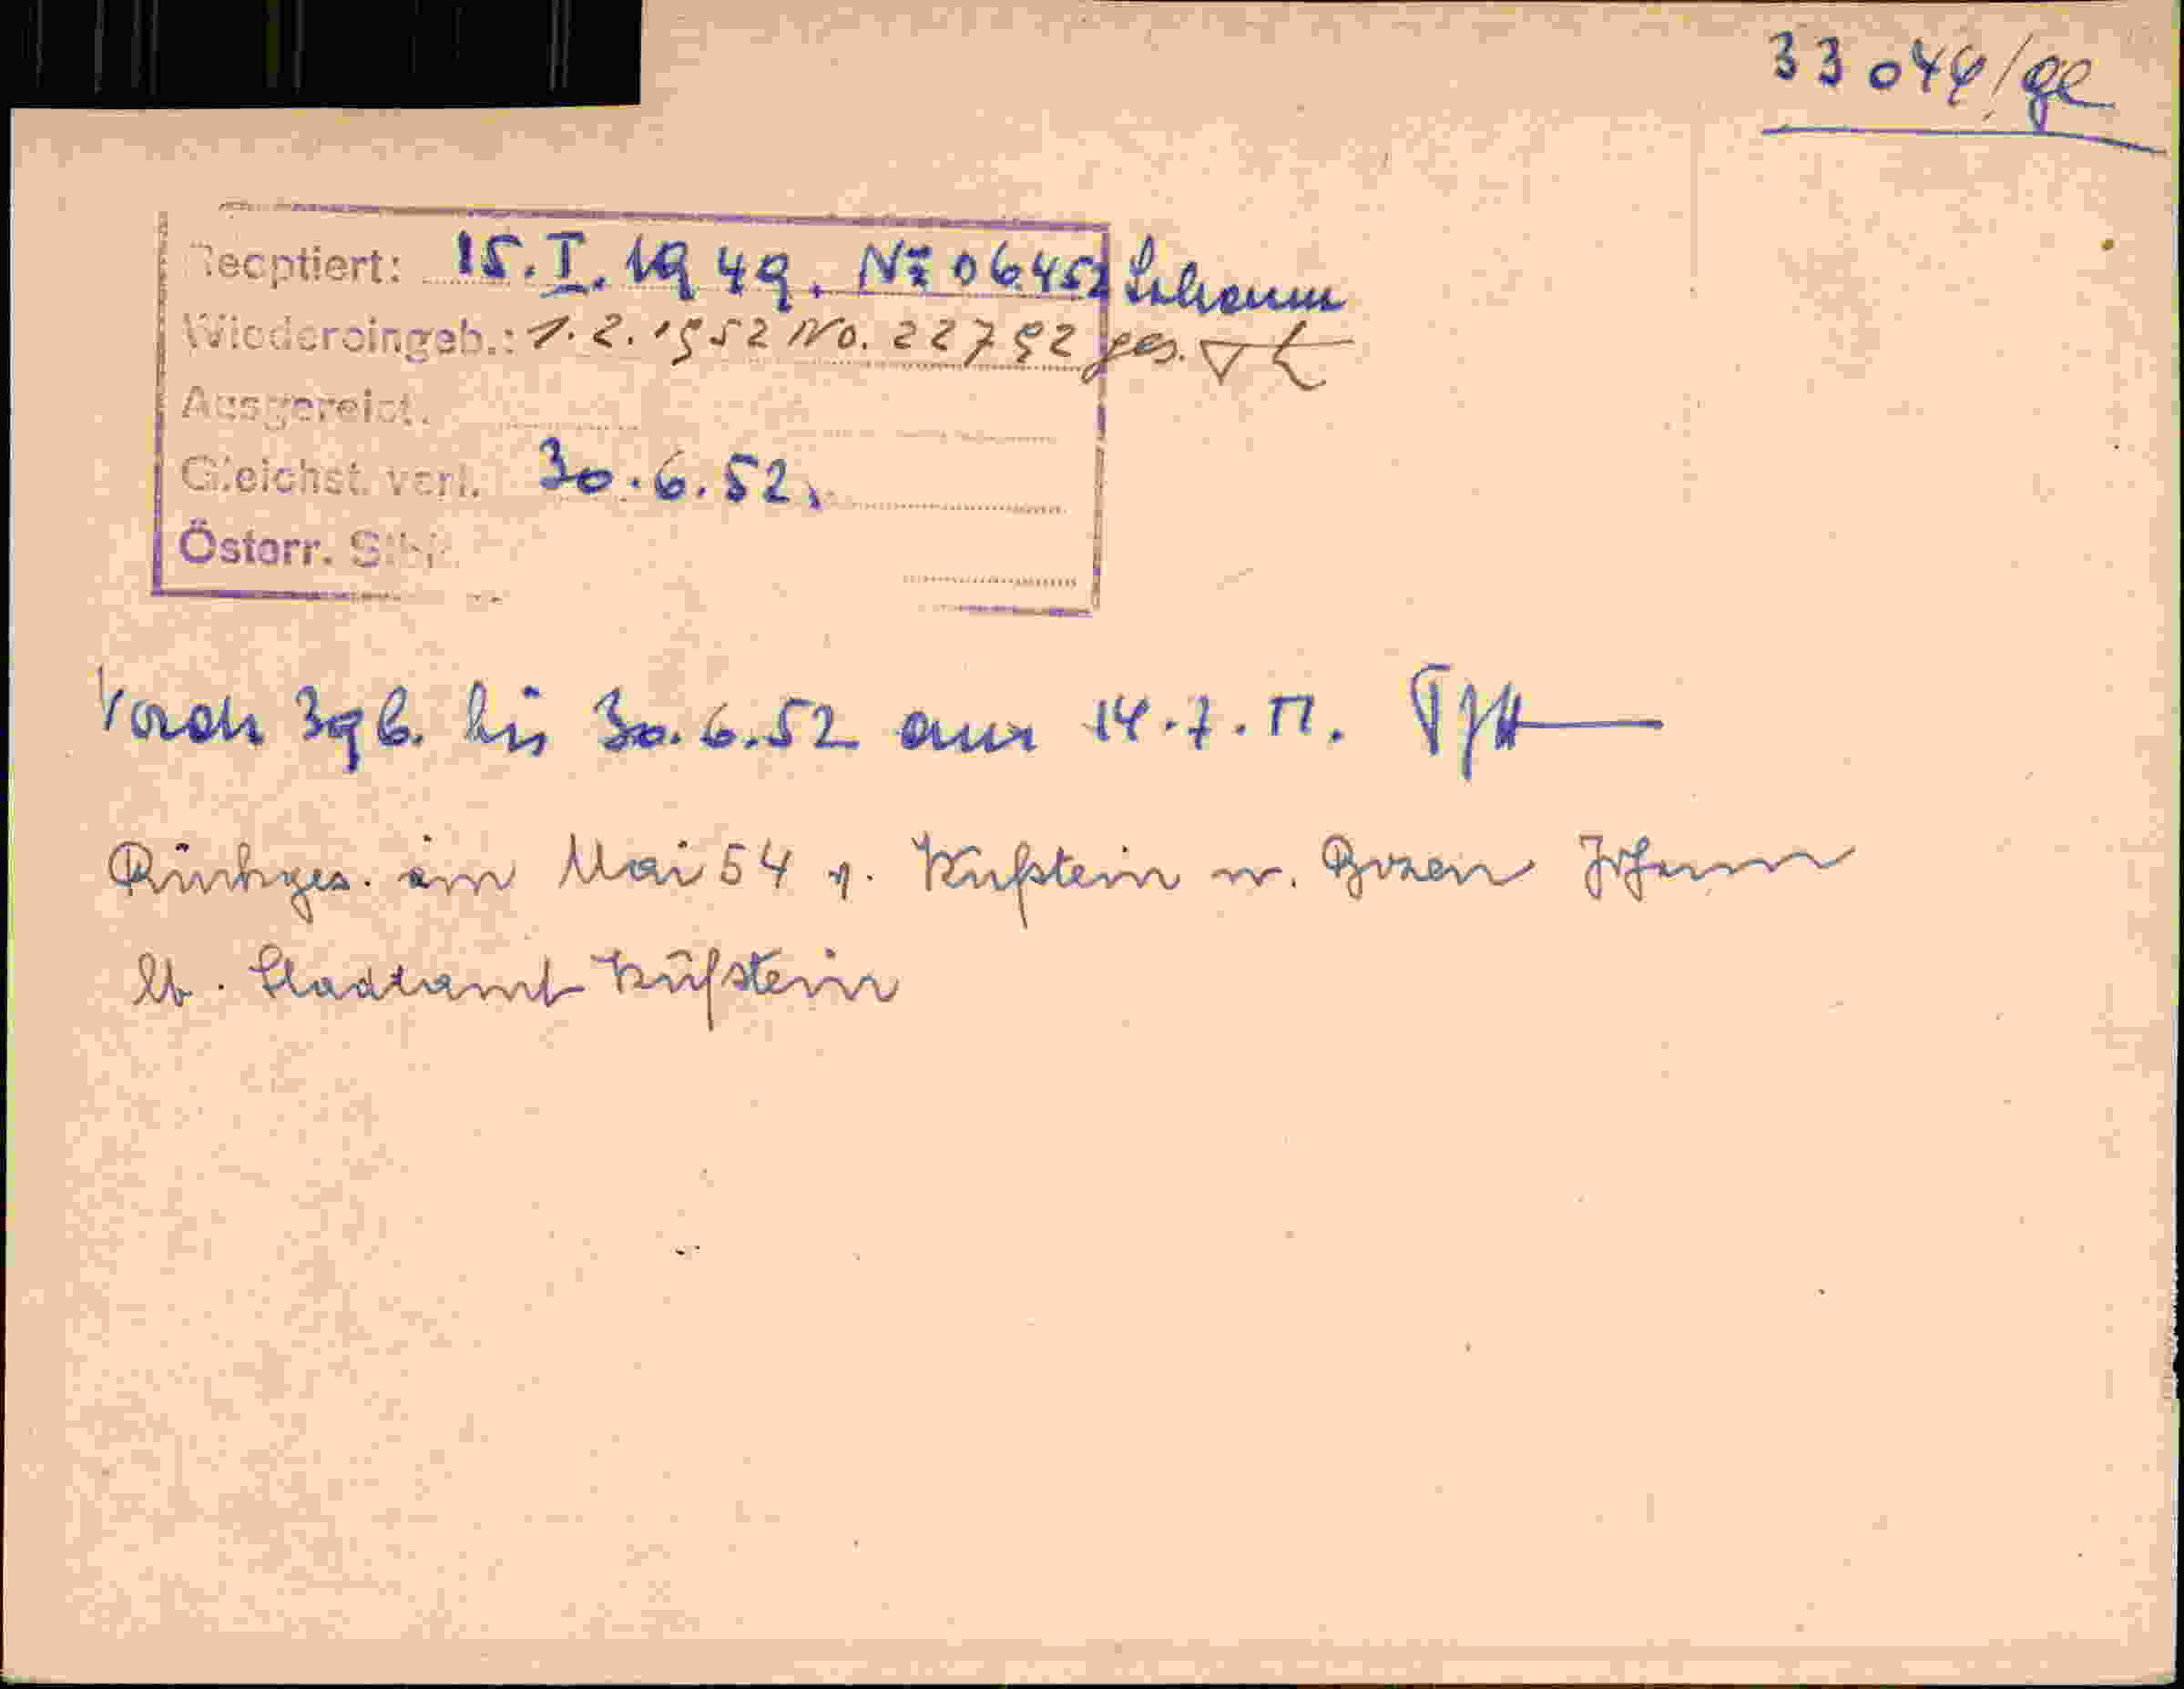 33044/ge
Reoptiert: 15.I.1949. Nr 06452
Wiedereingeb.: 1.2.1952 No. 22792 ges.
Ausgereist.
Gleichst. verl. 30.6.52.
Österr. Stb.
bis 30.6.52 am 14.7.
Rückges. im Mai 54 v. Kufstein n. Bozen
lt. Stadtamt Kufstein